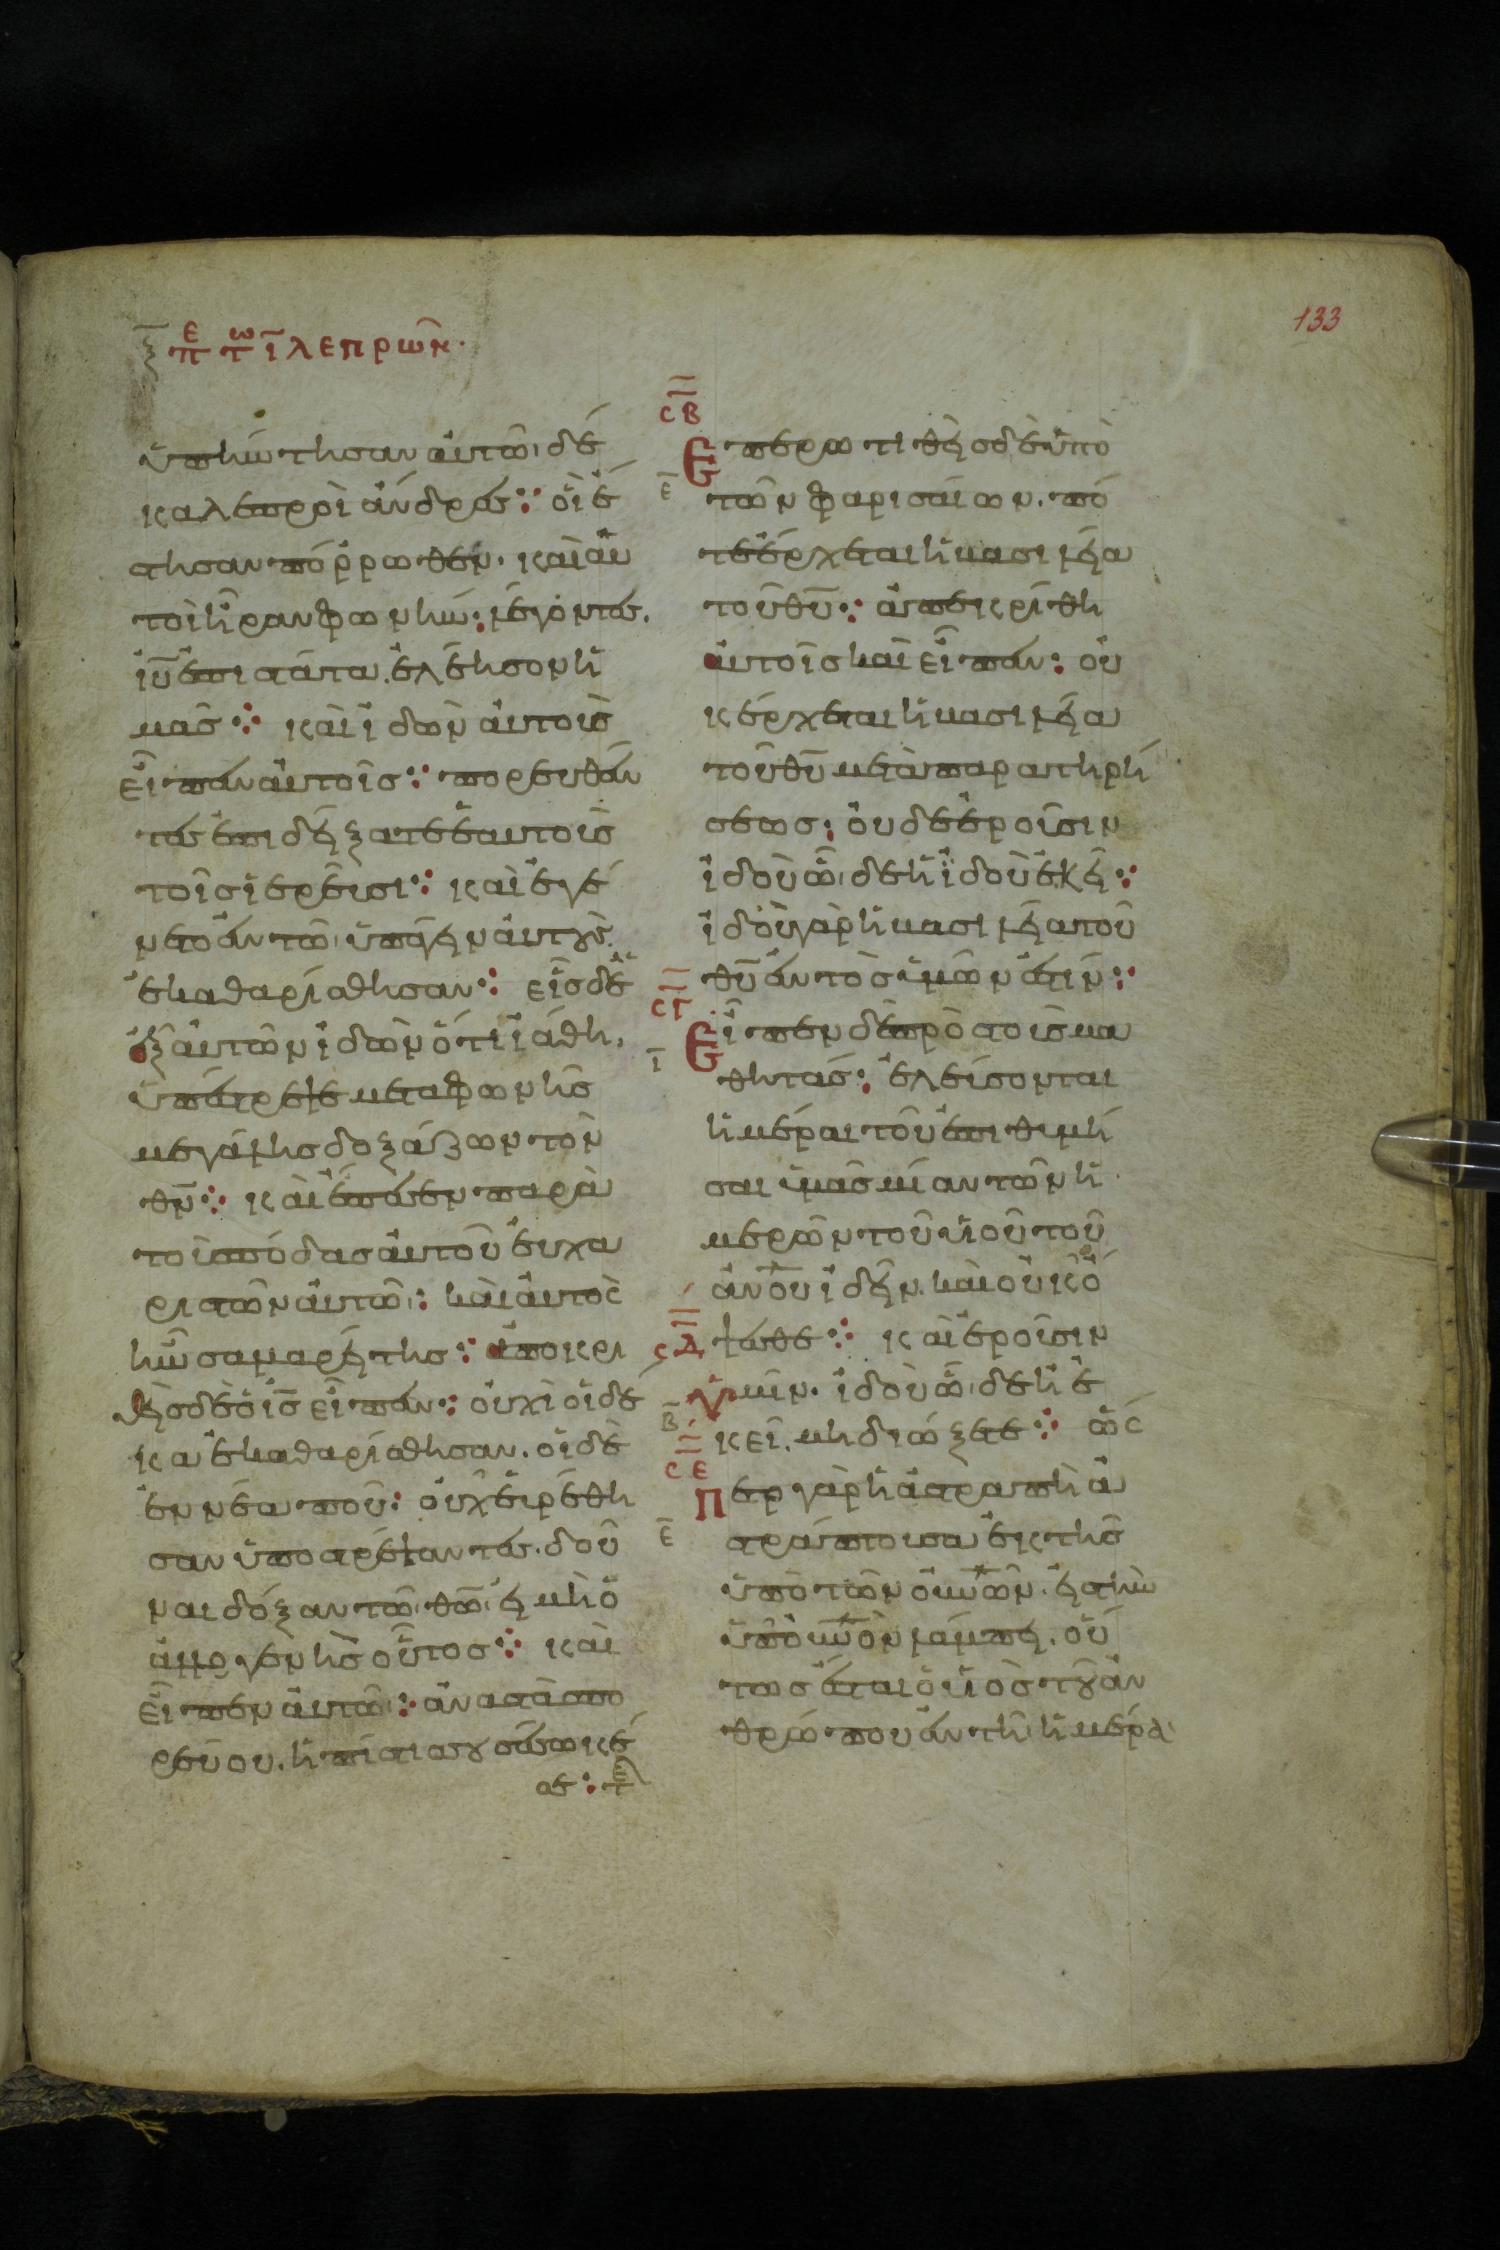 133
ξ πε τω ι λεπρῶν·
ὑπήντησαν αὐτῶ δέ
κα λεπροὶ ἄνδρες· οἳ ἔ
στησαν πόρρωθεν· καὶ αὐ
τοὶ ἦραν φωνὴν· λέγοντες·
ἰῦ ἐπιστάτα, ἐλέησον ἡ
μᾶς· καὶ ἰδὼν αὐτοὺς
εἶπεν αὐτοῖς· πορευθέν
τες ἐπιδείξατε ἑαυτοὺς
τοῖς ἱερεῦσι· καὶ ἐγέ
νετο ἐν τῶ ὑπάγειν αὐτοὺς
ἐκαθαρίσθησαν· εἷς δὲ
ἐξ αὐτῶν ἰδὼν ὅτι ἰάθη,
ὑπέστρεψε μετα φωνῆς
μεγάλης δοξάζων τὸν
θν· καὶ ἔπεσεν παρὰ
τοὺς πόδας αὐτοῦ εὐχα
ριστῶν αὐτῶ· καὶ αὐτὸς
ἦν σαμαρείτης· ἀποκρι
θεὶς δὲ ὁ ἰς εἶπεν· οὐχὶ οἱ δέ
κα ἐκαθαρίσθησαν· οἱ δὲ
ἐννέα ποῦ· οὐχ εὑρέθη
σαν ὑποστρέψαντες δοῦ
ναι δόξαν τῶ θω εἰ μὴ ὁ
ἀλλογενὴς οὗτος· καὶ
εἶπεν αὐτῶ· ἀναστὰς πο
ρεύου· ἡ πίστις σου σέσωκέ
σε· τε
ςβ
Επερωτηθεὶς δὲ ὑπὸ
ε
τῶν φαρισαίων· πό
τε ἔρχεται ἡ βασιλεία
τοῦ θυ· ἀπεκρίθη
αὐτοῖς καὶ εἶπεν· οὐ
κ ἔρχεται ἡ βασιλεία
τοῦ θυ μετὰ παρατηρή
σεως· οὐδὲ ἐροῦσιν
ἰδοὺ ὧδε ἢ ἰδοὺ ἐκεῖ·
ἰδοὺ γὰρ ἡ βασιλεία τοῦ
θυ ἐντὸς ὑμῶν ἐστίν·
ςγ
Εἶπεν δὲ πρὸς τοὺς μα
ι
θητάς· ἐλεύσονται
ἡμέραι τοῦ ἐπιθυμῆ
σαι ὑμᾶς μίαν τῶν ἡ
μερῶν τοῦ υἱοῦ τοῦ
ἀνου ἰδεῖν· καὶ οὐκ ὄ
ςδ
ψεσθε· καὶ ἐροῦσιν
ὑμῖν· ἰδοὺ ὧδε ἢ ἐ
β
κεῖ. μὴ διώξετε· ὥς
ςε
Περ γὰρ ἡ ἀστραπὴ ἀ
ε
στράπτουσα ἐκ τῆς
ὑπὸ τῶν οὐνῶν· εἰς τὴν
ὑπ' οὐνὸν λάμπει. οὕ
τως ἔσται ὁ υἱὸς τοῦ ἀν
θρώπου ἐν τῆ ἡμέρα